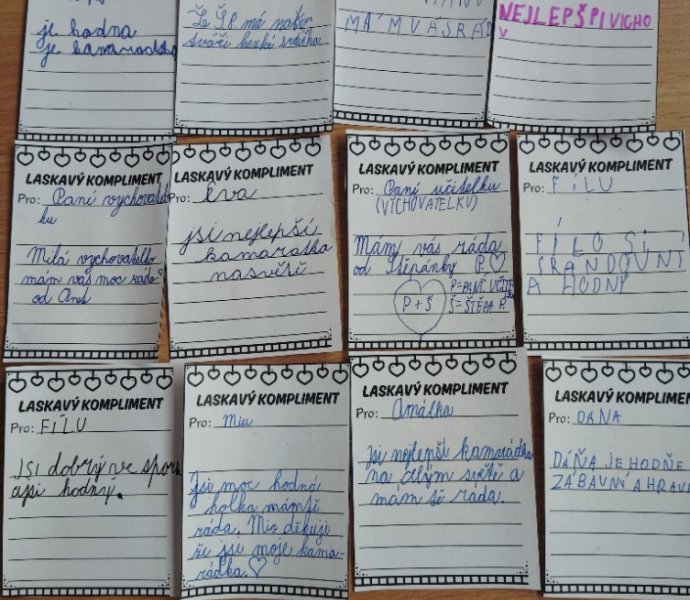 je hodna
je kamaradska
Že Š.P. má na
tváři hezká
MÁM VÁS RÁD
NEJLEPŠPIVICHO
V
LASKAVÝ KOMPLIMENT
Pro: Paní vychovatel
ku
Milá vychovatelko
mám vás moc ráda
od
LASKAVÝ KOMPLIMENT
Pro: Eva
jsi nejlepší
kamaratka
nasvětě
LASKAVÝ KOMPLIMENT
Pro: Paní učitelku
(VICHOVATELKU)
Mám vás ráda
od Štěpánky P. ♡
P=PANÍ UČITE
P+Š Š=ŠTĚPA Ř
LASKAVÝ KOMPLIMENT
Pro: FÍLU
FÍLO SI
SRANDOVNÍ
A HODNÍ
LASKAVÝ KOMPLIMENT
Pro: FÍLU
jsi dobrý ve spor
ajsi hodný.
LASKAVÝ KOMPLIMENT
Pro: Miu
Jsi moc hodná
holka mám tě
ráda. Mio děkuji
že jsi moje kama-
rádka. ♡
LASKAVÝ KOMPLIMENT
Pro: Amálka
Jsi nejlepší kamarádka
na celým světě a
mám tě ráda.
LASKAVÝ KOMPLIMENT
Pro: DANA
DÁŇA JE HODŇE
ZÁBAVNÍ A HRAVÍ